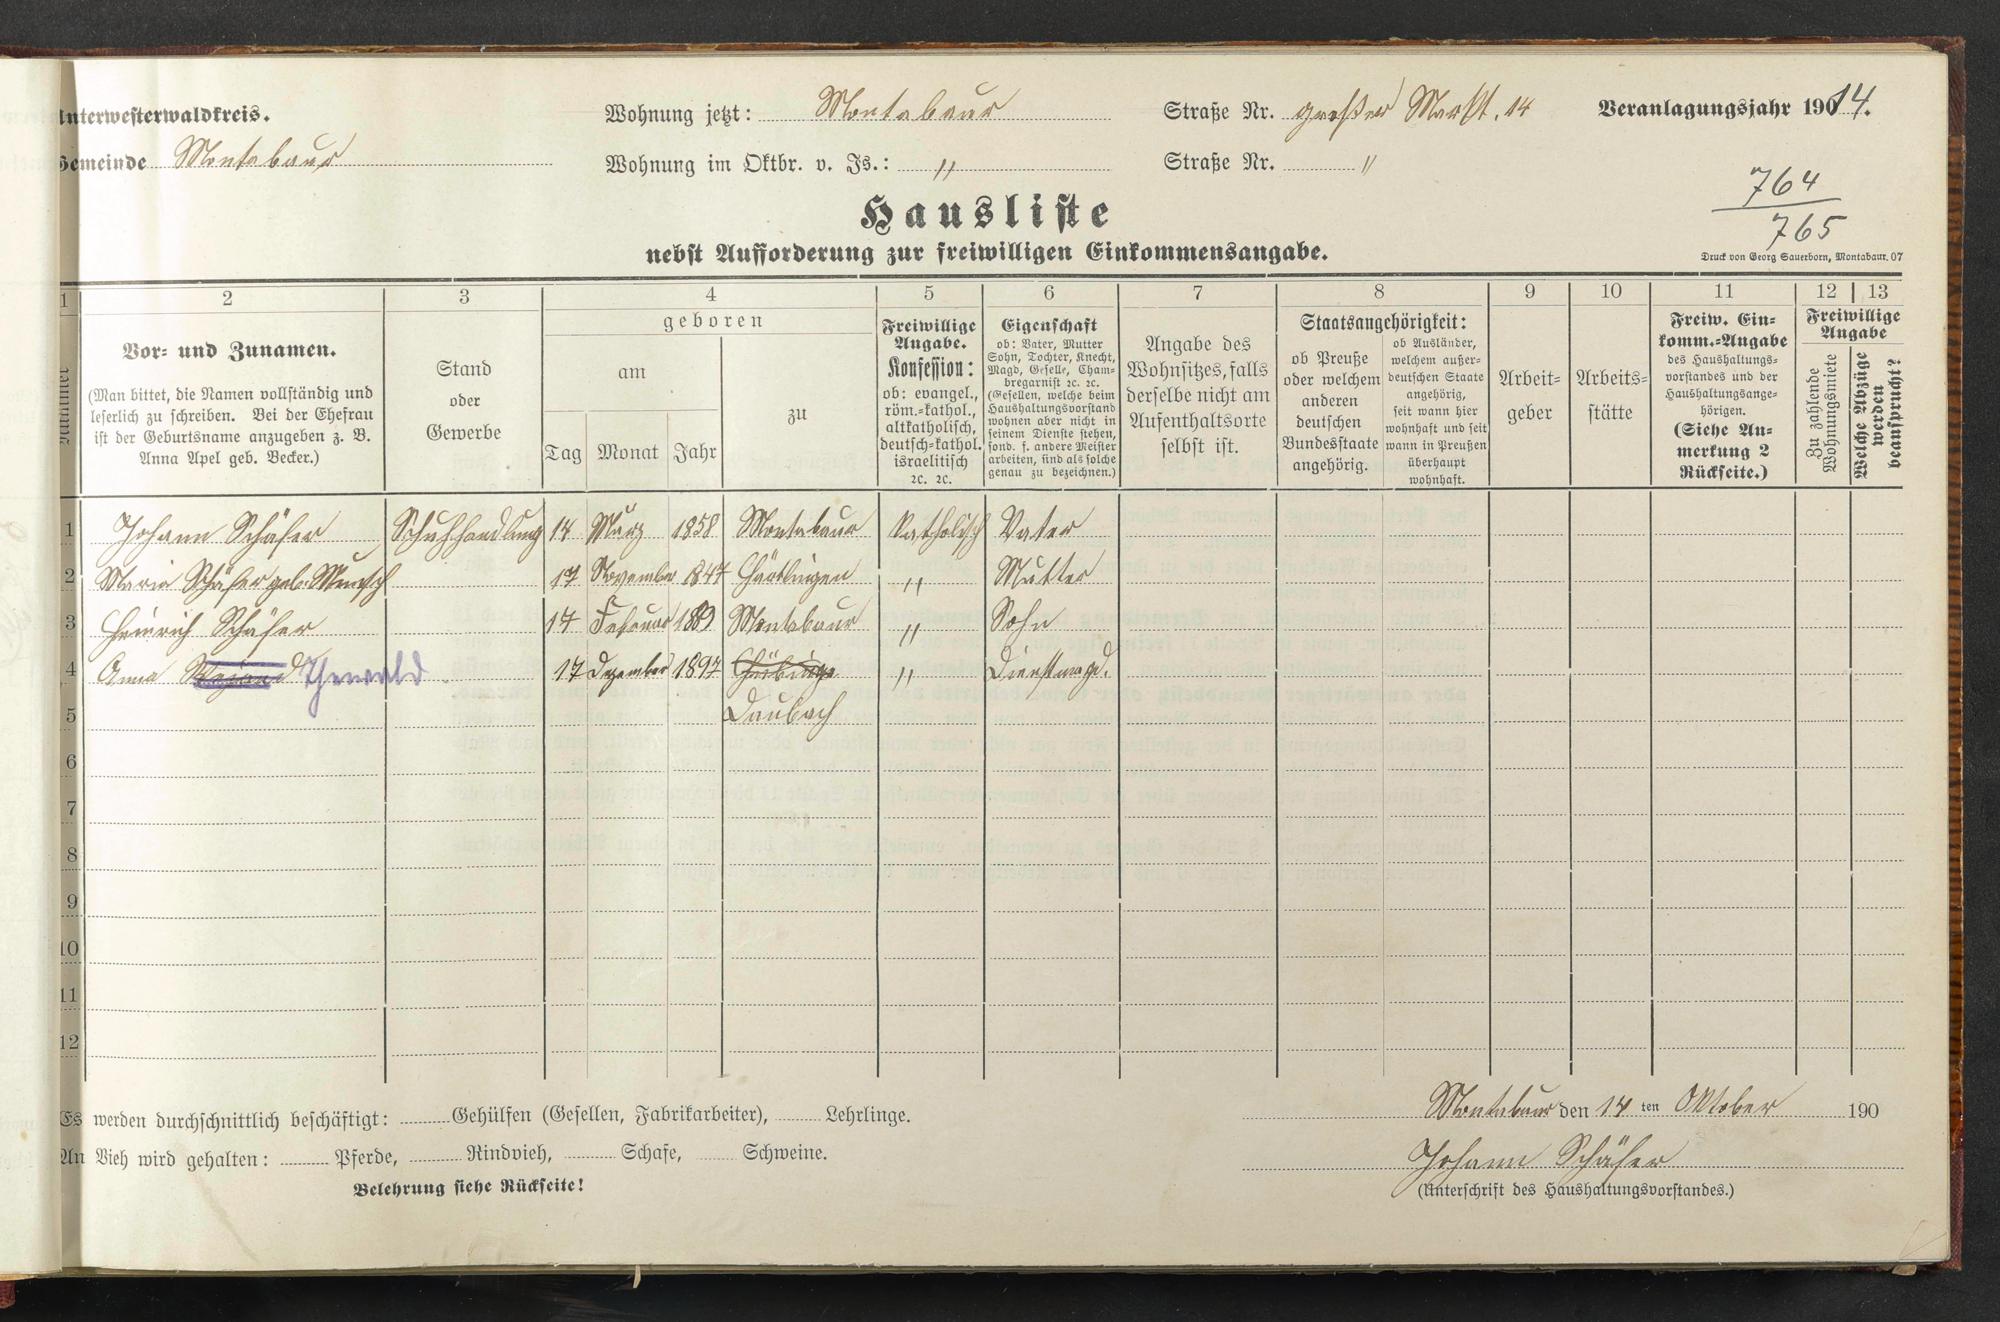 Unterwesterwaldkreis.
Wohnung jetzt: Montabaur
Straße Nr. großer Markt. 14
Veranlagungsjahr 19014.
Gemeinde Montabaur
Wohnung im Oktbr. v. Js.: "
Straße Nr. "
764
765
Hausliste
nebst Aufforderung zur freiwilligen Einkommensangabe.
Druck von Georg Sauerborn, Montabaur. 07
1 2 3 4 5 6 7 8 9 10 11 12 13
Nummer
Vor- und Zunamen.
(Man bittet, die Namen vollständig und
leserlich zu schreiben. Bei der Ehefrau
ist der Geburtsname anzugeben z. B.
Anna Apel geb. Becker.)
Stand
oder
Gewerbe
geboren
am
Tag Monat Jahr
zu
Freiwillige
Angabe.
Konfession:
ob: evangel.,
röm.-kathol.,
altkatholisch,
deutsch-kathol.
israelitisch
ꝛc. ꝛc.
Eigenschaft
ob: Vater, Mutter
Sohn, Tochter, Knecht,
Magd, Geselle, Cham-
bregarnist ꝛc. ꝛc.
(Gesellen, welche beim
Haushaltungsvorstand
wohnen aber nicht in
seinem Dienste stehen,
sond. f. andere Meister
arbeiten, sind als solche
genau zu bezeichnen.)
Angabe des
Wohnsitzes, falls
derselbe nicht am
Aufenthaltsorte
selbst ist.
Staatsangehörigkeit:
ob Preuße
oder welchem
anderen
deutschen
Bundesstaate
angehörig.
ob Ausländer,
welchem außer-
deutschen Staate
angehörig,
seit wann hier
wohnhaft und seit
wann in Preußen
überhaupt
wohnhaft.
Arbeit-
geber
Arbeits-
stätte
Freiw. Ein-
komm.-Angabe
des Haushaltungs-
vorstandes und der
Haushaltungsange-
hörigen.
(Siehe An-
merkung 2
Rückseite.)
Freiwillige
Angabe
Zu zahlende
Wohnungsmiete
Welche Abzüge
werden
beansprucht?
1 Johann Schäfer Schuhhandlung 14 März 1858 Montabaur Katholisch Vater
2 Maria Schäfer geb. 17 November 1847 Härtlingen " Mutter
3 Heinrich Schäfer 14 Februar Montabaur " Sohn
4 Anna Thewald 17 Dezember 1897 " Dienstmagd.
5 Daubach
6
7
8
9
10
11
12
Es werden durchschnittlich beschäftigt: Gehülfen (Gesellen, Fabrikarbeiter), Lehrlinge.
An Vieh wird gehalten: Pferde, Rindvieh, Schafe, Schweine.
Belehrung siehe Rückseite!
Montabaur den 14 ten Oktober 190
Johann Schäfer
(Unterschrift des Haushaltungsvorstandes.)